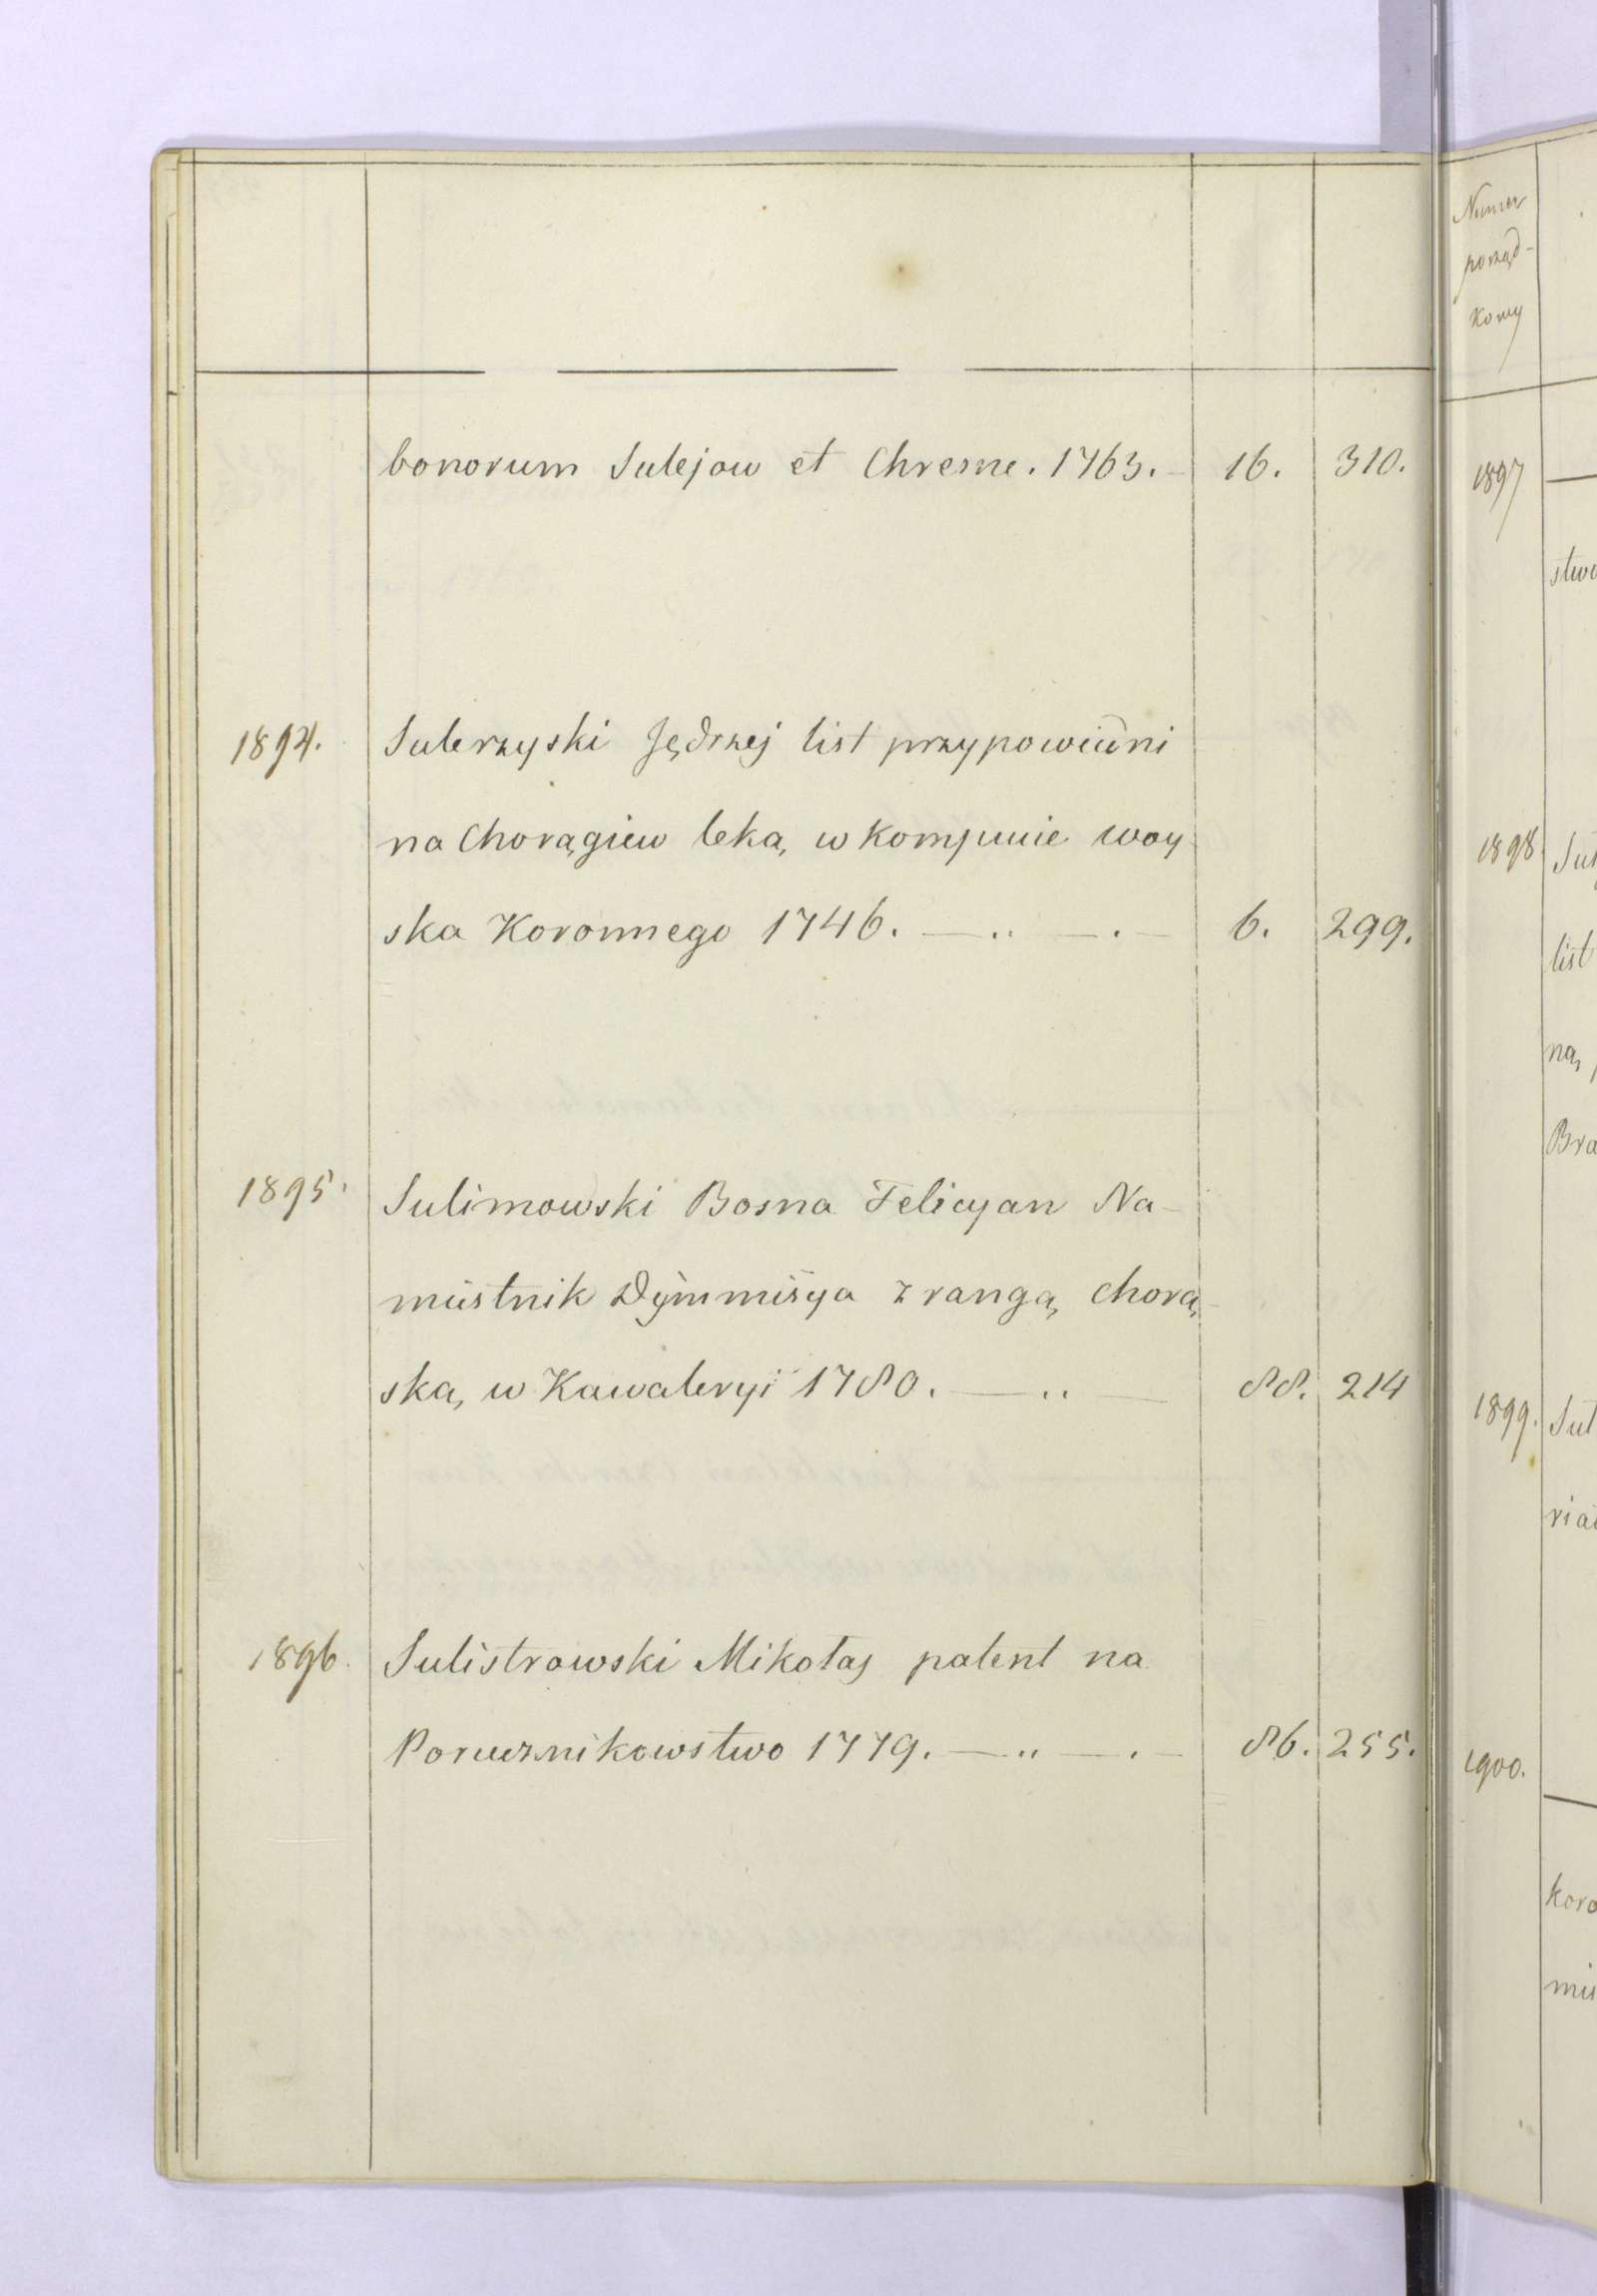 bonorum Sulejow et Chresne. 1763. — 16. 310.
1894. Sulerzyski Jędrzej list przypowiedni
na Chorągiew leką w kompucie woy
ska Koronnego 1746. — „ — . — 6. 299.
1895. Sulimowski Bosna Felicyan Na-
miestnik Dymmisya z rangą chorą-
ską w Kawaleryi 1780. — „ — 88. 214
1896. Sulistrowski Mikołaj patent na
Porucznikowstwo 1779. — „ — . — 86. 255.
Numer
porząd-
kowy
1897
stwo
1898. Sul
list
ną
Bra
1899. Sul
ria
1900.
koro
mie